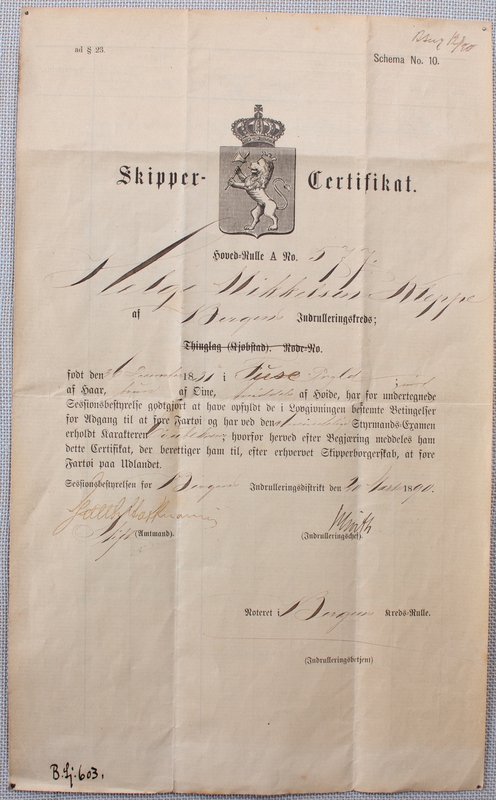 ad § 23.
Schema No. 10.
Skipper- Certifikat.
Hoved-Rulle A No. 577.
Helge Mikkelsen Kleppe
af Bergens Indrulleringskreds;
Thinglag (Kjøbstad). Rode-No.
født den 18 i
af Haar, af Øine, af Høide, har for undertegnede
Sessionsbestyrelse godtgjort at have opfyldt de i Lovgivningen bestemte Betingelser
for Adgang til at føre Fartøi og har ved den Styrmands-Examen
erholdt Karakteren hvorfor herved efter Begjæring meddeles ham
dette Certifikat, der berettiger ham til, efter erhvervet Skipperborgerskab, at føre
Fartøi paa Udlandet.
Sessionsbestyrelsen for Bergens Indrulleringsdistrikt den 1890.
(Amtmand). (Indrulleringschef).
Noteret i Bergens Kreds-Rulle.
(Indrulleringsbetjent)
B.Sj.603.